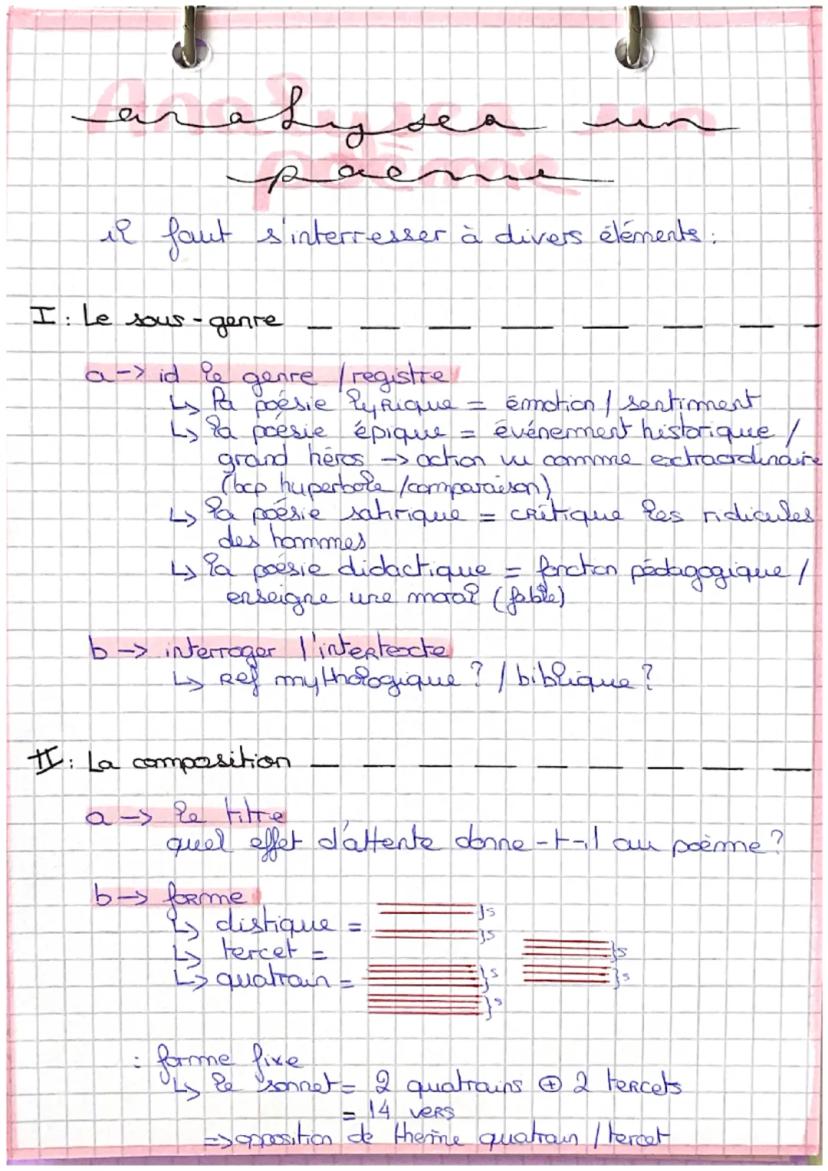 analyser un
poème
il faut s'interresser à divers éléments :
I : Le sous-genre
a -> id le genre / registre
↳ la poésie lyrique = émotion / sentiment
↳ la poésie épique = événement historique /
grand héros -> action vu comme extraordinaire
(bcp huperbole / comparaison)
↳ la poésie satirique = critique les ridicules
des hommes
↳ la poésie didactique = fonction pédagogique /
enseigne une moral (fable)
b -> interroger l'intertexte
↳ Ref mythologique ? / biblique ?
II : La composition
a -> le titre
quel effet d'attente donne-t-il au poème ?
b -> forme
↳ distique = }s }s
↳ tercet = }s }s
↳ quatrain = }s }s
: forme fixe
↳ le sonnet = 2 quatrains ⊕ 2 tercets
= 14 vers
=> opposition de thème quatrain / tercet